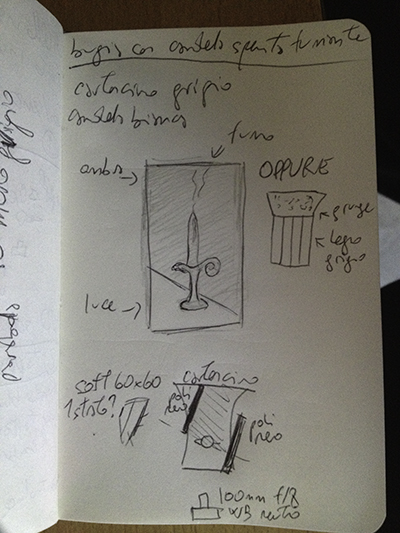 bugia con candela spenta fumante
cartoncino grigio
candela bianca
fumo
ombra
OPPURE
grunge
legno
grigio
luce
soft 60x60
1 strato?
cartoncino
poli
nero
poli
nero
100mm f/8
WB neutro